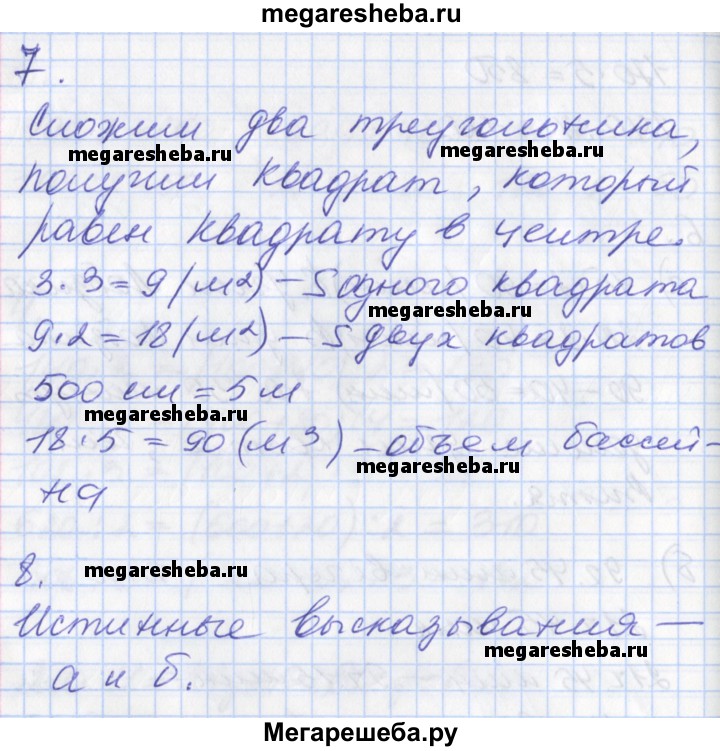 megaresheba.ru
7.
Сложим два треугольника,
megaresheba.ru
megaresheba.ru
получим квадрат, который
равен квадрату в центре.
3·3=9(м²)-S одного квадрата
megaresheba.ru
9·2=18(м²)-S двух квадратов
megaresheba.ru
500 см=5м
megaresheba.ru
18·5=90(м³)-объем бассей-
megaresheba.ru
на
8.
megaresheba.ru
Истинные высказывания-
megaresheba.ru
а и б.
Мегарешеба.ру